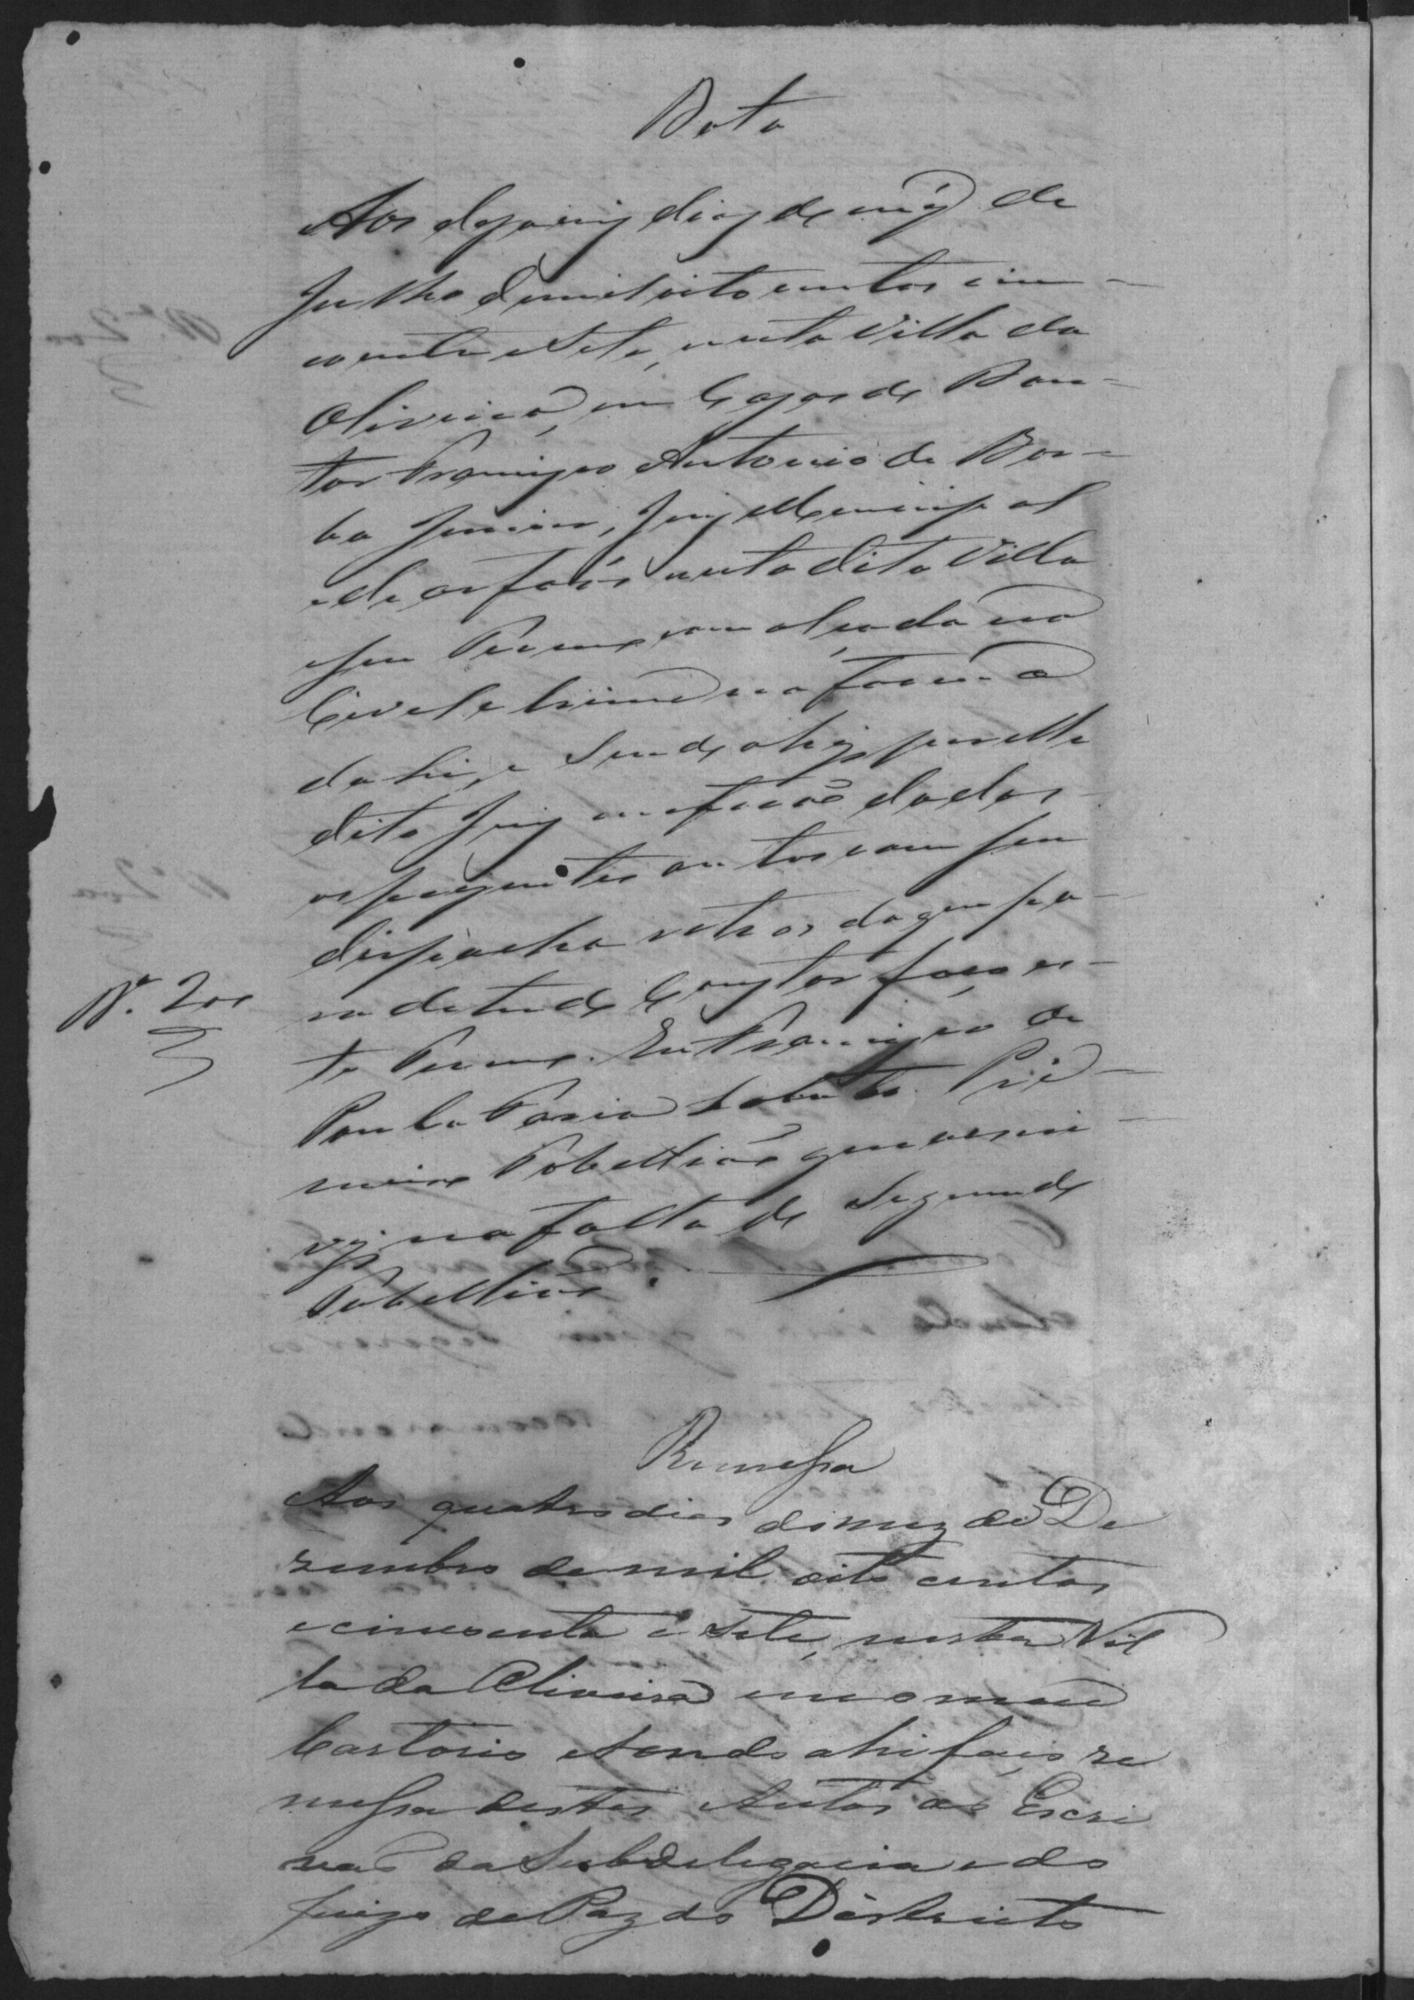 Data
Aos dezaseis dias do mez de
Julho de mil oito centos cin-
coenta e sete, nesta Villa da
Oliveira, em Cazas do Dou-
tor Francisco Antonio de Bor-
ba Junior, Juiz Municipal
e de orfaõs nesta dita Villa
e seu Termo com alçada no
Civel e Crime na forma
da lei, e sendo ahi por elle
dito Juiz me foraõ dados
os seguintes autos com seu
despacho retro; do que pa-
ra de tudo constar faço es-
te Termo. Eu Francisco de
Paula Faria Lobato Pri-
meiro Tabelliaõ que escre-
vy na falta do Segundo
Tabelliaõ.
Nº. 200
Remessa
Aos quatro dias do mez de De
zembro de mil oito centos
e cincoenta e sete, nesta Vil
la da Oliveira em o meu
Cartorio e sendo ahi faço re
messa destes Autos ao Escri
vaõ da Subdelegacia e do
Juizo de Paz do Districto